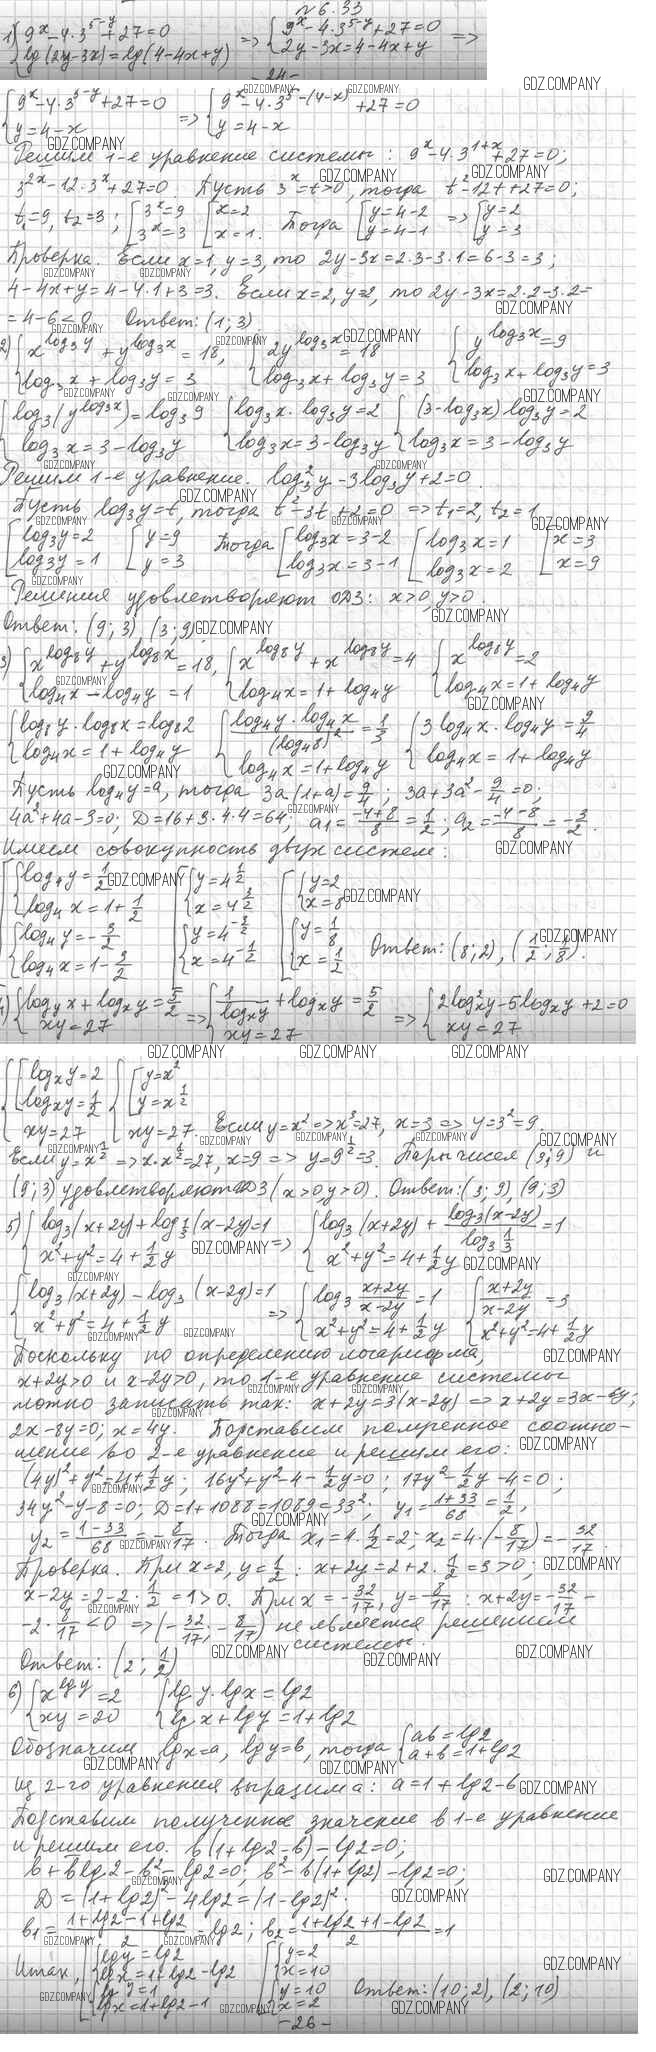 №6.33
1) { 9^x-4·3^(5-y)+27=0 => { 9^x-4·3^(5-y)+27=0 =>
{ lg(2y-3x)=lg(4-4x+y) { 2y-3x=4-4x+y
-24-
GDZ.COMPANY
{ 9^x-4·3^(5-y)+27=0 => { 9^x-4·3^(5-(4-x))+27=0
{ y=4-x { y=4-x
Решим 1-е уравнение системы: 9^x-4·3^(1+x)+27=0;
3^(2x)-12·3^x+27=0. Пусть 3^x=t>0, тогда t²-12t+27=0;
t₁=9, t₂=3; [ 3^x=9 [ x=2 Тогда [ y=4-2 => [ y=2
[ 3^x=3 [ x=1. [ y=4-1 [ y=3
Проверка. Если x=1, y=3, то 2y-3x=2·3-3·1=6-3=3;
4-4x+y=4-4·1+3=3. Если x=2, y=2, то 2y-3x=2·2-3·2=
=4-6<0 Ответ: (1;3)
2) { x^(log₃y)+y^(log₃x)=18, { 2y^(log₃x)=18 { y^(log₃x)=9
{ log₃x+log₃y=3 { log₃x+log₃y=3 { log₃x+log₃y=3
{ log₃(y^(log₃x))=log₃9 { log₃x·log₃y=2 { (3-log₃x)log₃y=2
{ log₃x=3-log₃y { log₃x=3-log₃y { log₃x=3-log₃y
Решим 1-е уравнение. log₃²y-3log₃y+2=0.
Пусть log₃y=t, тогда t²-3t+2=0 => t₁=2, t₂=1
[ log₃y=2 [ y=9 Тогда [ log₃x=3-2 [ log₃x=1 [ x=3
[ log₃y=1 [ y=3 [ log₃x=3-1 [ log₃x=2 [ x=9
Решения удовлетворяют ОДЗ: x>0, y>0.
Ответ: (9;3), (3;9).
3) { x^(log₈y)+y^(log₈x)=18, { x^(log₈y)+x^(log₈y)=4 { x^(log₈y)=2
{ log₄x-log₄y=1 { log₄x=1+log₄y { log₄x=1+log₄y
{ log₈y·log₈x=log₈2 { log₄y·log₄x/(log₄8)²=1/3 { 3log₄x·log₄y=9/4
{ log₄x=1+log₄y { log₄x=1+log₄y { log₄x=1+log₄y
Пусть log₄y=a, тогда 3a(1+a)=9/4; 3a+3a²-9/4=0;
4a²+4a-3=0; D=16+3·4·4=64; a₁=(-4+8)/8=1/2; a₂=(-4-8)/8=-3/2.
Имеем совокупность двух систем:
{ log₄y=1/2 { y=4^(1/2) { y=2
{ log₄x=1+1/2 { x=4^(3/2) { x=8
{ log₄y=-3/2 { y=4^(-3/2) { y=1/8
{ log₄x=1-3/2 { x=4^(-1/2) { x=1/2 Ответ: (8;2), (1/2;1/8).
4) { log_y x+log_x y=5/2 => { 1/log_x y+log_x y=5/2 => { 2log_x²y-5log_x y+2=0
{ xy=27 { xy=27 { xy=27
GDZ.COMPANY GDZ.COMPANY GDZ.COMPANY
{ [ log_x y=2 { [ y=x²
{ [ log_x y=1/2 { [ y=x^(1/2)
{ xy=27 { xy=27. Если y=x² => x³=27, x=3 => y=3²=9.
Если y=x^(1/2) => x·x^(1/2)=27, x=9 => y=9^(1/2)=3. Пары чисел (3;9) и
(9;3) удовлетворяют ОДЗ (x>0, y>0). Ответ: (3;9), (9;3)
5) { log₃(x+2y)+log_(1/3)(x-2y)=1 => { log₃(x+2y)+log₃(x-2y)/log₃(1/3)=1
{ x²+y²=4+1/2y { x²+y²=4+1/2y
{ log₃(x+2y)-log₃(x-2y)=1 => { log₃((x+2y)/(x-2y))=1 { (x+2y)/(x-2y)=3
{ x²+y²=4+1/2y { x²+y²=4+1/2y { x²+y²=4+1/2y
Поскольку по определению логарифма,
x+2y>0 и x-2y>0, то 1-е уравнение системы
можно записать так: x+2y=3(x-2y) => x+2y=3x-6y;
2x-8y=0; x=4y. Подставим полученное соотно-
шение во 2-е уравнение и решим его:
(4y)²+y²=4+1/2y; 16y²+y²-4-1/2y=0; 17y²-1/2y-4=0;
34y²-y-8=0; D=1+1088=1089=33²; y₁=(1+33)/68=1/2;
y₂=(1-33)/68=-8/17. Тогда x₁=4·1/2=2; x₂=4·(-8/17)=-32/17.
Проверка. При x=2, y=1/2: x+2y=2+2·1/2=3>0;
x-2y=2-2·1/2=1>0. При x=-32/17, y=-8/17: x+2y=-32/17-
-2·8/17<0 => (-32/17;-8/17) не является решением
системы.
Ответ: (2;1/2)
6) { x^(lgy)=2 { lgy·lgx=lg2
{ xy=20 { lgx+lgy=1+lg2
Обозначим lgx=a, lgy=b, тогда { ab=lg2
{ a+b=1+lg2
Из 2-го уравнения выразим a: a=1+lg2-b
Подставим полученное значение в 1-е уравнение
и решим его. b(1+lg2-b)-lg2=0;
b+blg2-b²-lg2=0; b²-b(1+lg2)-lg2=0;
D=(1+lg2)²-4lg2=(1-lg2)².
b₁=(1+lg2-1+lg2)/2=lg2; b₂=(1+lg2+1-lg2)/2=1
Итак, { lgy=lg2 { y=2
{ lgx=1+lg2-lg2 { x=10
{ lgy=1 { y=10
{ lgx=1+lg2-1 { x=2 Ответ: (10;2), (2;10)
-26-
GDZ.COMPANY